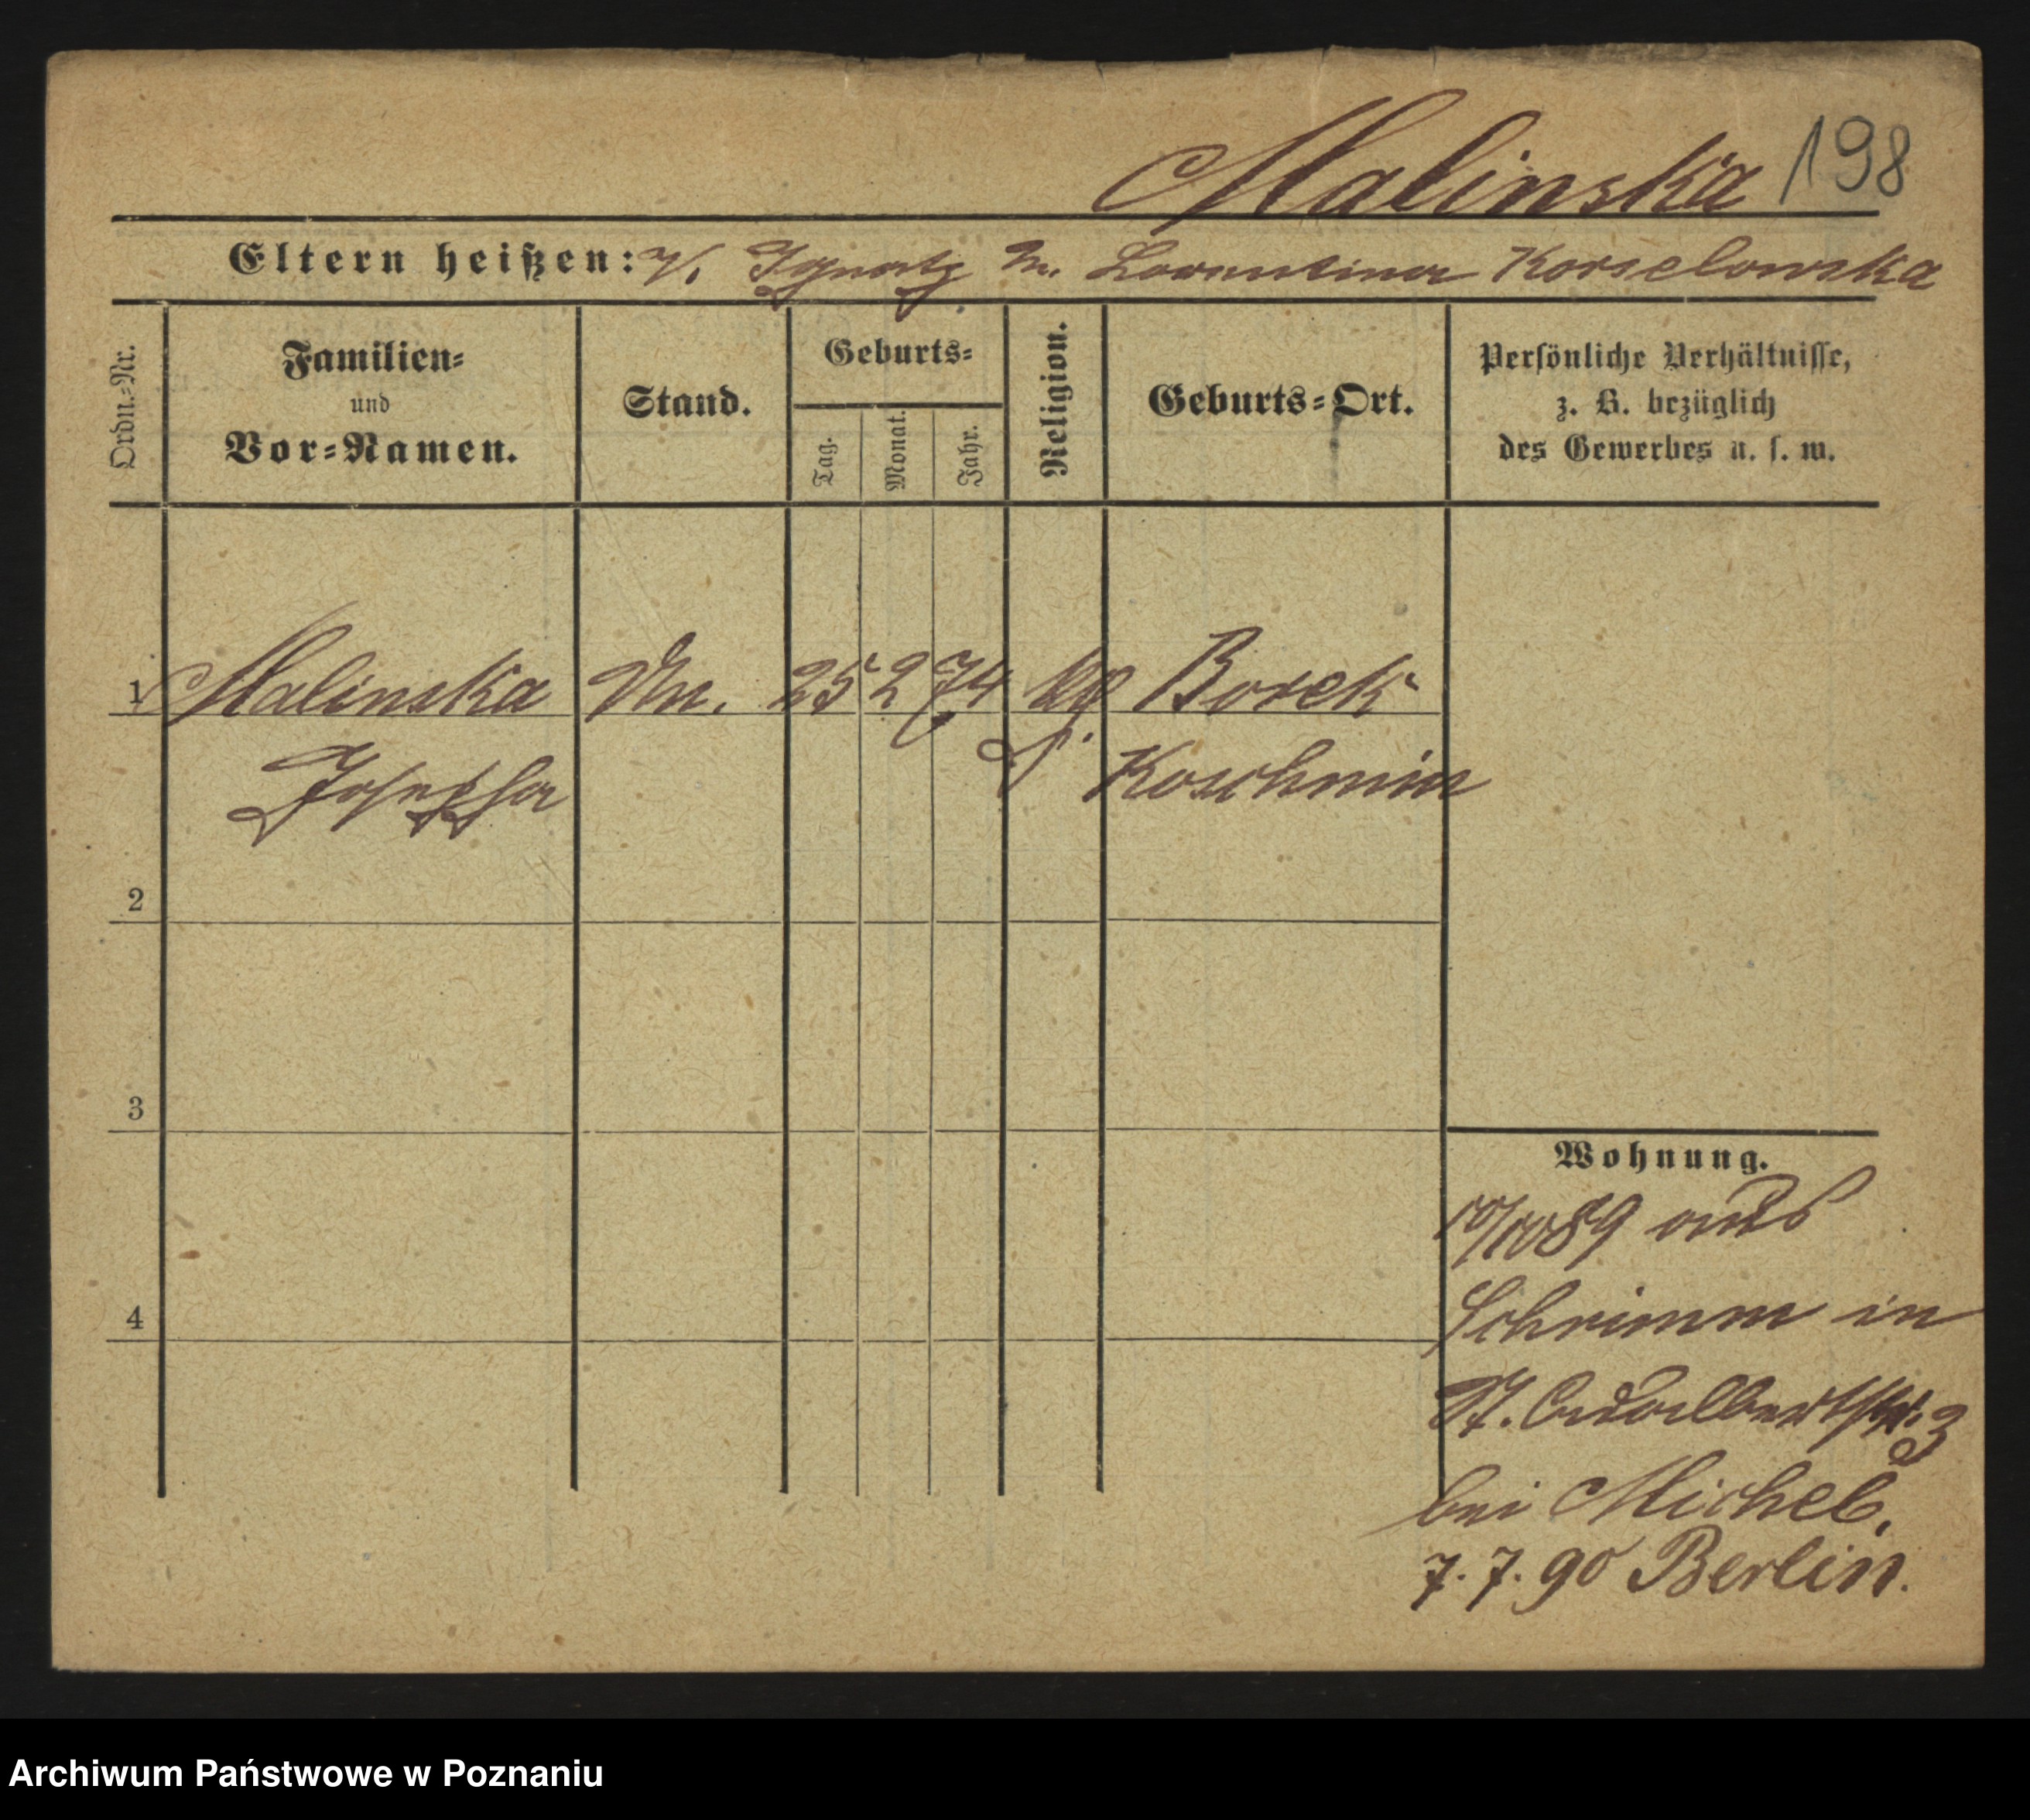 Malinska 198
Eltern heißen: V. Ignatz M. Laurentina Korselowska
Ordn.-Nr.
Familien-
und
Vor-Namen.
Stand.
Geburts-
Tag.
Monat.
Jahr.
Religion.
Geburts-Ort.
Persönliche Verhältnisse,
z. B. bezüglich
des Gewerbes u. s. w.
1 Malinska Un. 25 2 74 kath Borek
Josepha Koschmin
2
3
4
Wohnung.
10/10 89 aus
Schrimm in
St. Adalbertstr. 3
bei Michel.
7. 7. 90 Berlin.
Archiwum Państwowe w Poznaniu